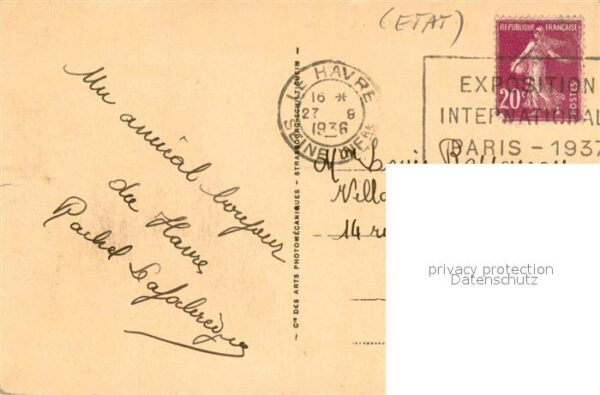 (ETAT)
REPUBLIQUE FRANÇAISE
20c
POSTES
LE HAVRE
16 *
27 8
1936
SEINE INFRE
EXPOSITION
INTERNATIONAL
PARIS - 1937
Un amical bonjour
du Havre
Rachel
Cie DES ARTS PHOTOMÉCANIQUES - STRASBOURG-SCHILTIGHEIM
Mr Louis
Villa
14 
privacy protection
Datenschutz